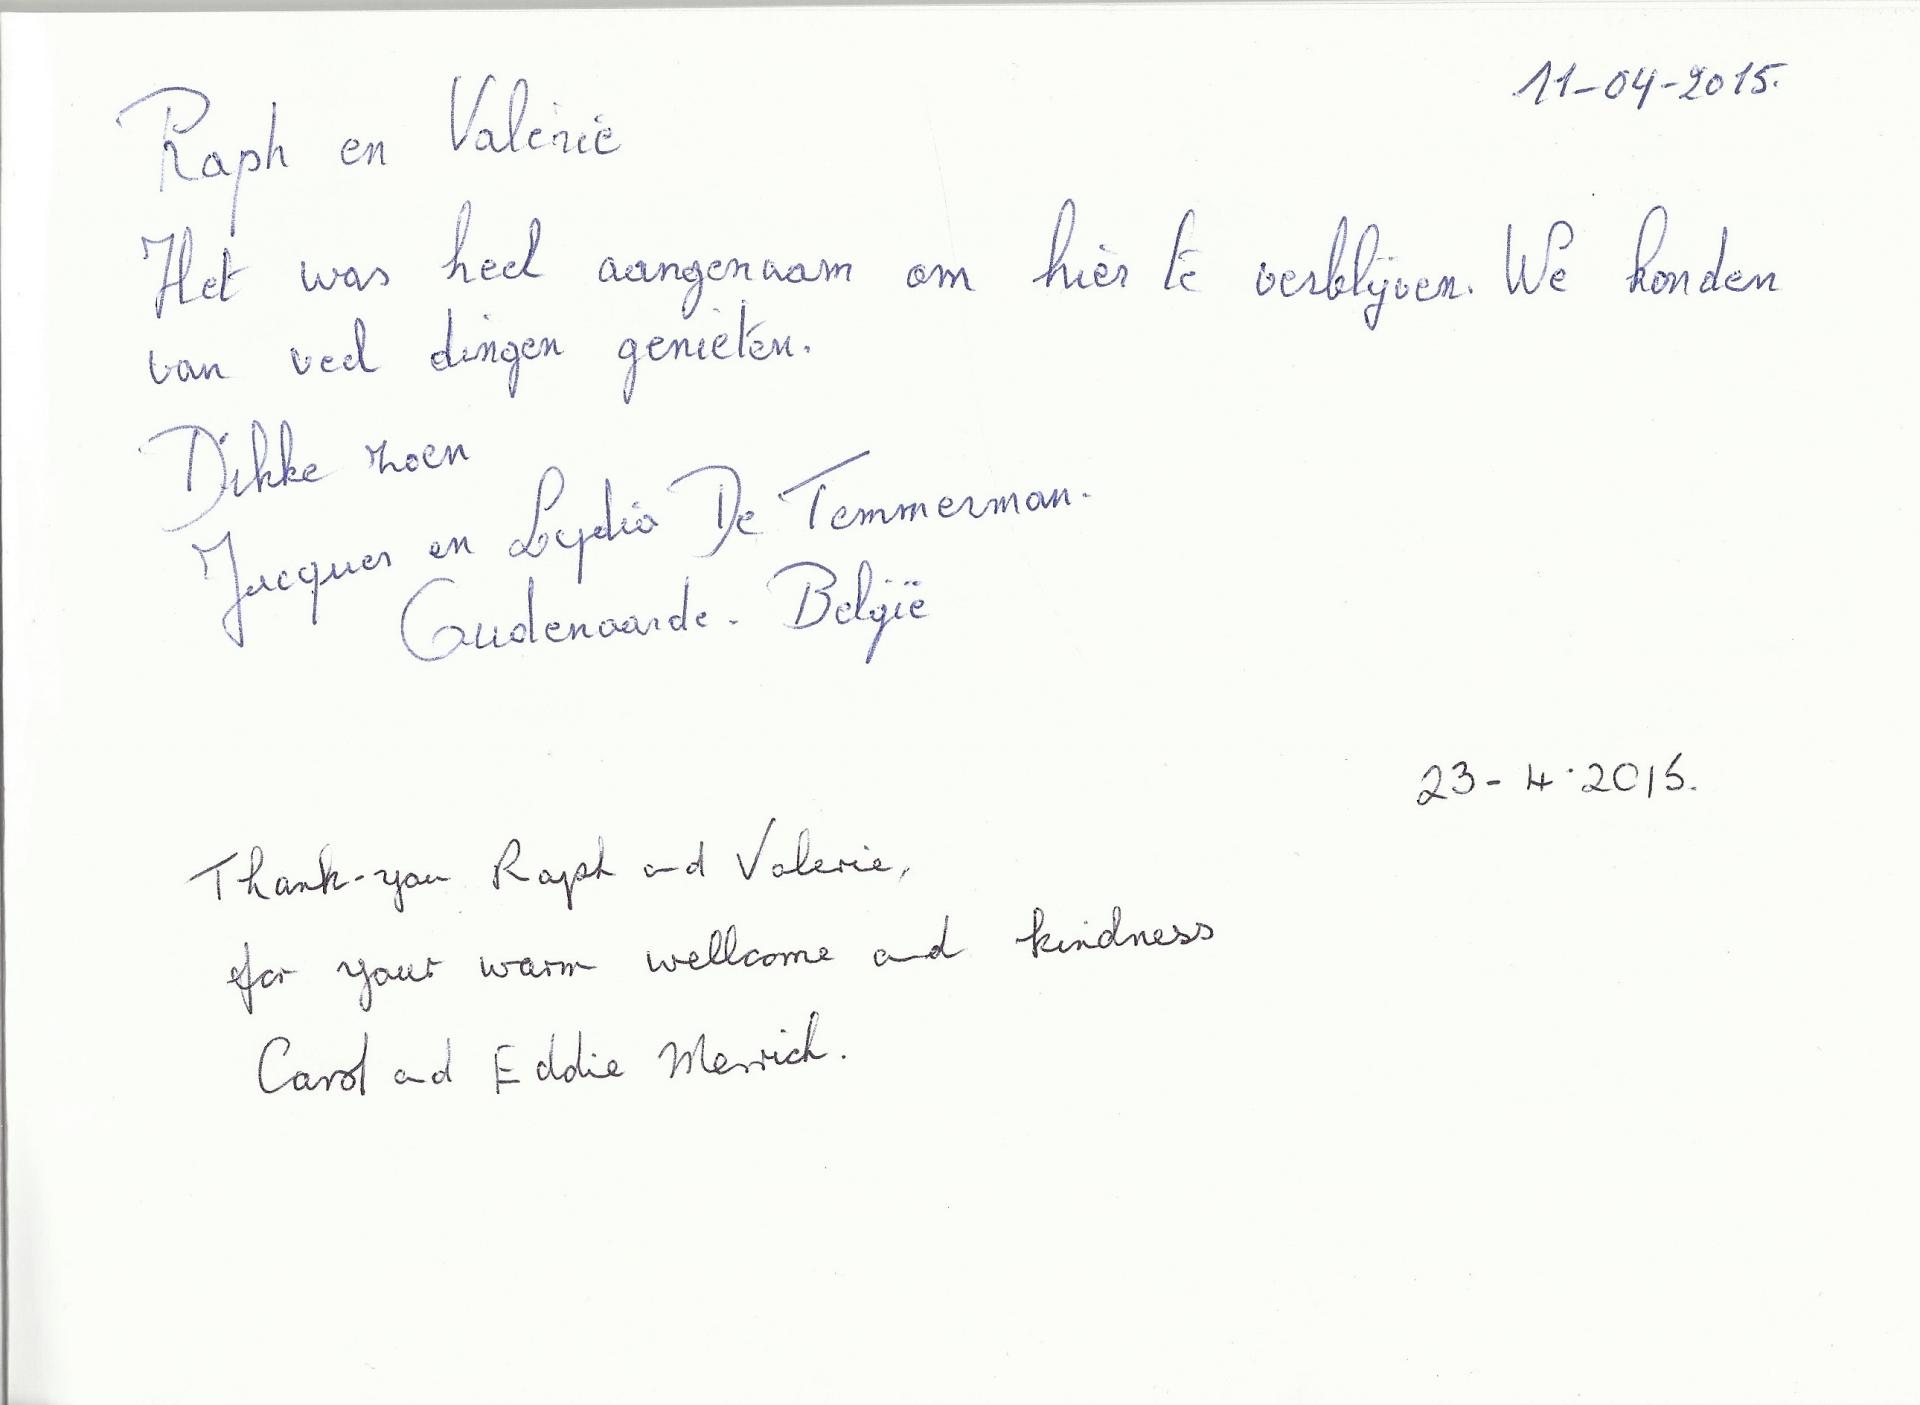 11-04-2015.
Raph en Valérie
Het was heel aangenaam om hier te verblijven. We konden
van veel dingen genieten.
Dikke zoen
Jacques en Lydia De Temmerman.
Oudenaarde - België
23-4-2015.
Thank-you Raph and Valerie,
for your warm wellcome and kindness
Carol and Eddie Merrick.